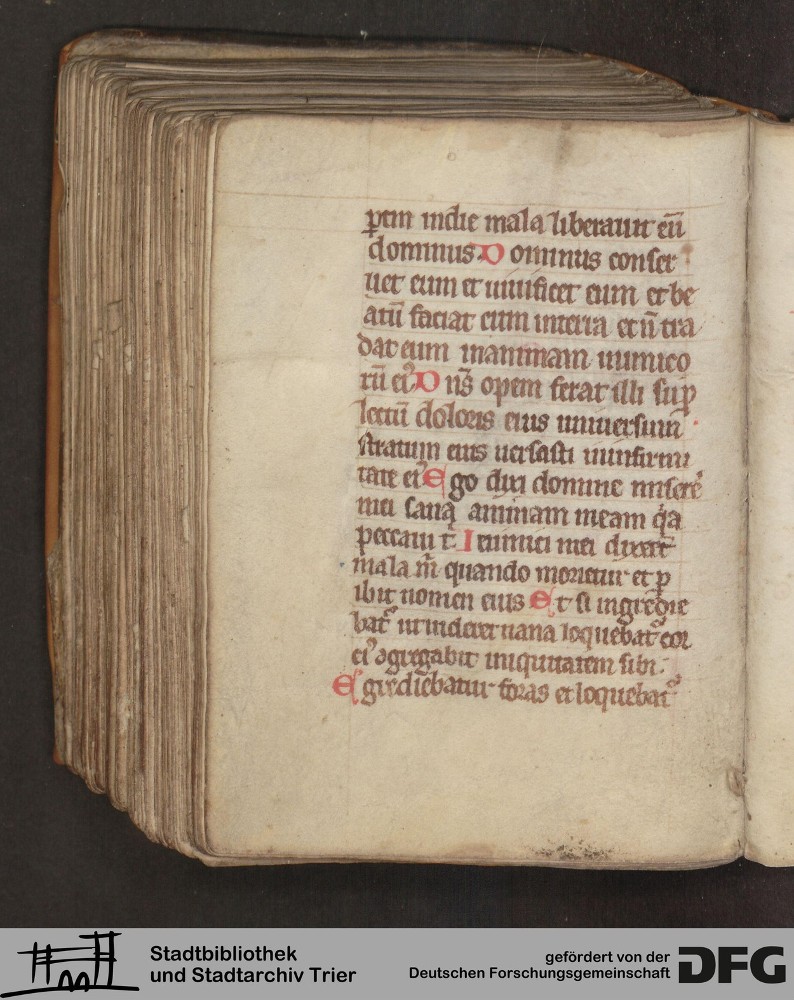 ꝑem in die mala liberauit eū
dominus Dominus conser
uet eum et uiuificet eum et be
atū faciat eum in terra et ñ tra
dat eum in animam inimico
rū eiꝰ Dñs opem ferat illi suꝑ
lectū doloris eius uniuersum
stratum eius uersasti in infirmi
tate eiꝰ Ego dixi domine misere
mei sana animam meam q̇a
peccaui t̄ Inimici mei dixerūt
mala m̄ quando morietur et ꝑ
ibit nomen eius Et si ingredie
bat᷑ ut uideret uana loquebat᷑ cor
eiꝰ agregabit iniquitatem sibi
Egrediebatur foras et loquebat᷑
Stadtbibliothek
und Stadtarchiv Trier
gefördert von der
Deutschen Forschungsgemeinschaft
DFG